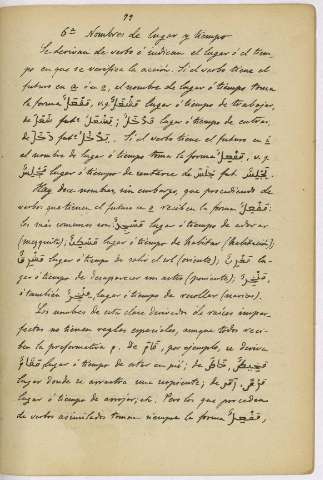 99
6º Nombres de lugar y tiempo
Se derivan de verbo é indican el lugar ó el tiem-
po en que se verifica la acción. Si el verbo tiene el
futuro en a ó u, el nombre de lugar ó tiempo toma
la forma مَفْعَلٌ, v.g. مَشْغَلٌ lugar ó tiempo de trabajar,
de شَغَلَ fut.º يَشْغَلُ; مَدْخَلٌ lugar ó tiempo de entrar,
de دَخَلَ fut.º يَدْخُلُ. Si el verbo tiene el futuro en i
el nombre de lugar ó tiempo toma la forma مَفْعِلٌ, v.g.
مَجْلِسٌ lugar ó tiempo de sentarse de جَلَسَ fut. يَجْلِسُ.
Hay doce nombres, sin embargo, que procediendo de
verbos que tienen el futuro en u reciben la forma مَفْعِلٌ:
los más comunes son مَسْجِدٌ lugar ó tiempo de adorar
(mezquita); مَسْكِنٌ lugar ó tiempo de habitar (habitación);
مَشْرِقٌ lugar ó tiempo de salir el sol (oriente); مَغْرِبٌ lu-
gar ó tiempo de desaparecer un astro (poniente);
ó también lugar ó tiempo de resollar (narices).
Los nombres de esta clase derivados de raices imper-
fectas no tienen reglas especiales, aunque todos reci-
ben la preformativa م. de قَامَ, por ejemplo, se deriva
مَقَامٌ lugar ó tiempo de estar en pié; de
lugar donde se arrastra una serpiente; de رَمَى, مَرْمًى
lugar ó tiempo de arrojar, etc. Pero los que proceden
de verbos asimilados toman siempre la forma مَفْعِلٌ,